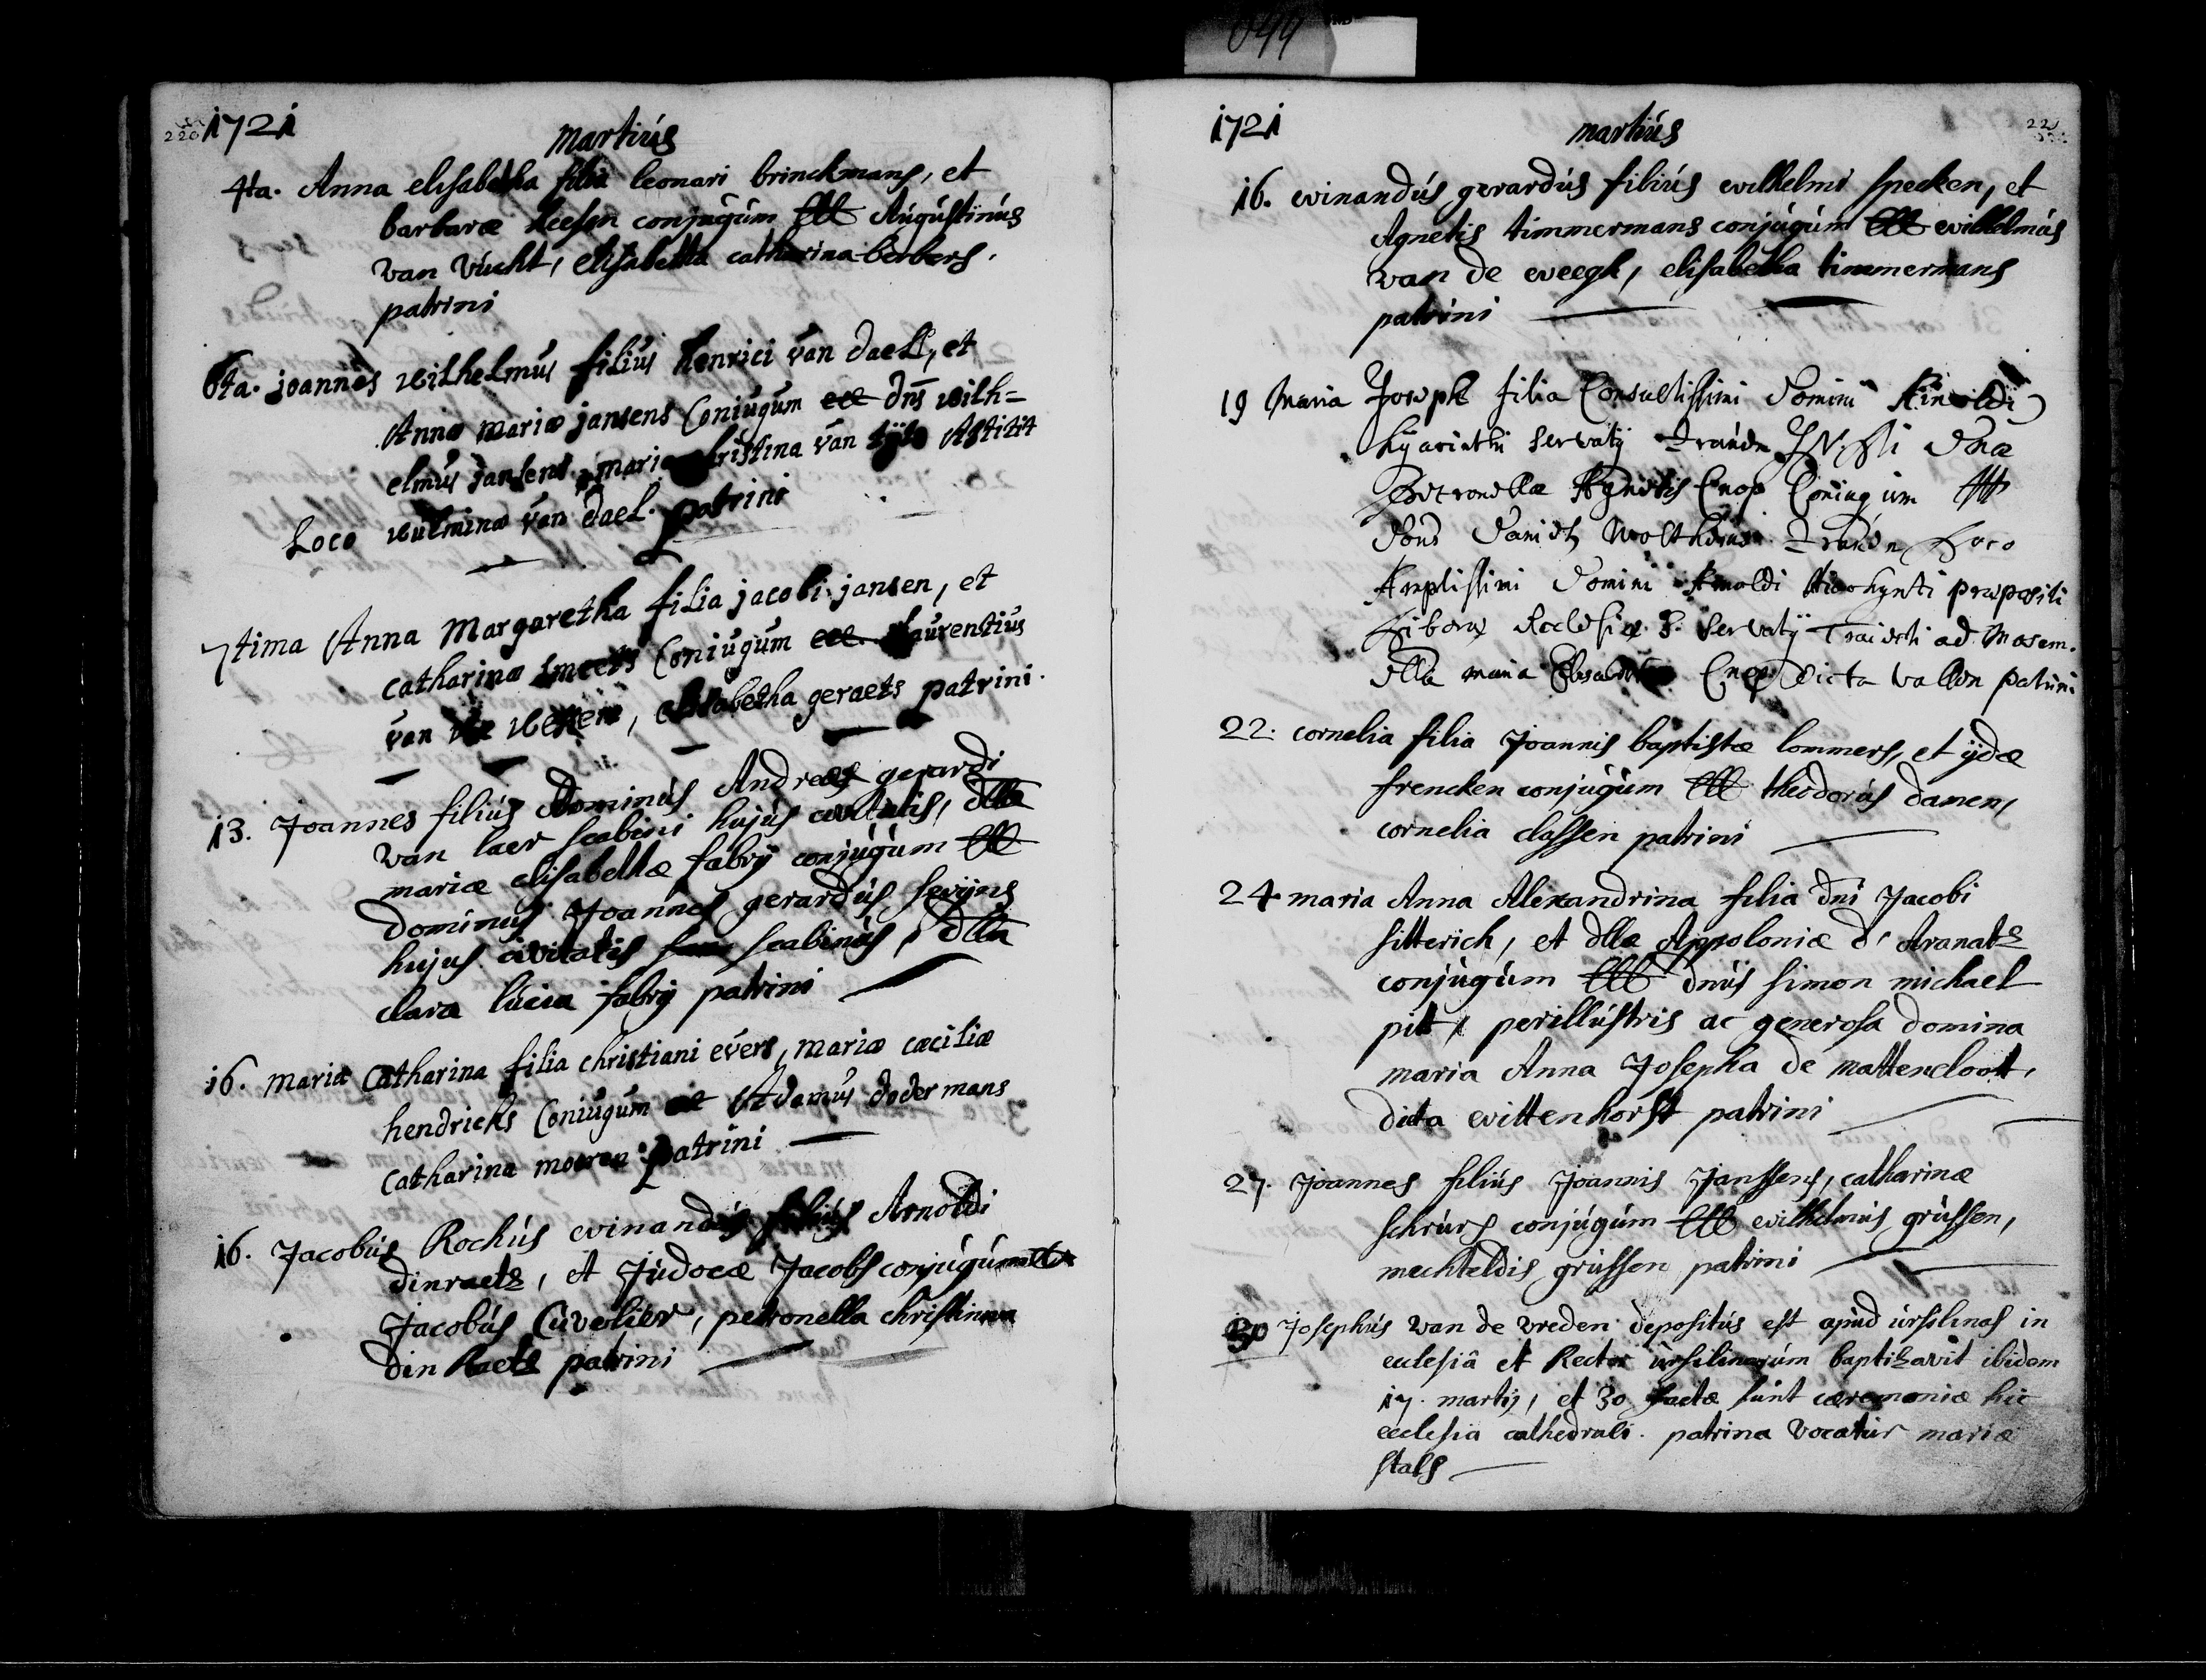 044
220 1721
Martiús
4ta. Anna elisabetha filia leonari brinckmans, et
barbaræ Heesen conjugúm Augústinús
van vúcht, elisabetha catharina berbers.
patrini
6ta. joannes wilhelmus filius henrici van daell, et
Annæ mariæ jansens Coniugum dns wilh=
elmus jansens maria christina van Astitit
Loco wulminæ van dael. patrini
7tima Anna Margaretha filia jacobi jansen, et
catharinæ smeets Coniugum laurentius
van, elisabetha geraets patrini.
13. Joannes filiús Dominús Andreas gerardi
van laer scabini hujús civitatis, dlla
mariæ elisabethæ fabrij conjúgúm
Dominus Joannes gerardús sevijns
hujus civitatis scabinús, dlla
clara lúcia fabrij patrini
16. maria Catharina filia christiani evers, mariæ cæciliæ
hendricks Coniugum Adamus dodermans
catharina moeren patrini
16. Jacobús Rochús winandús filiús Arnoldi
dinraets, et Júdocæ Jacobs conjúgúm
Jacobús Cúvelier, petronella christina
din Raets patrini
1721
martiús
16. winandús gerardús filiús wilhelmi specken, et
Agnetis timmermans conjúgúm wilhelmús
van de weegh, elisabetha timmermans
patrini
19 Maria Joseph filia Consultissimi Domini
hyacinthi servatij
Petronellæ Agnetis Coniugum
Loco
Amplissimi Domini Arnoldi præpositi
Ecclesiæ S. Servatij Traiecti ad Mosam.
dlla maria dicta vallon patrini
22. cornelia filia Joannis baptistæ lommers, et ydæ
frencken conjúgúm theodorús damen,
cornelia classen patrini
24 maria Anna Alexandrina filia dni Jacobi
sitterich, et dllæ Appoloniæ d'Aranats
conjúgúm dnús simon michael
pit, perillústris ac generosa domina
maria Anna Josepha de mattencloot,
dicta wittenhorst patrini
27. Joannes filiús Joannis Janssens, catharinæ
schrúrs conjúgúm wilhelmús grússen,
mechteldis grússen patrini
30 Josephús van de vreden depositús est apúd úrsulinas in
ecclesiâ et Rector úrsilinarúm baptizavit ibidem
17. martij, et 30 factæ súnt cæremoniæ hic
ecclesia cathedrali. patrina vocatúr maria
stals